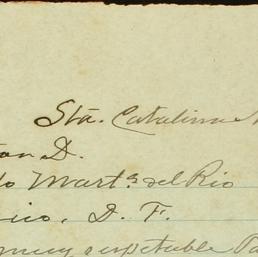 Sta. Catalina
D.
Mart.s del Rio
D. F.
muy respetable